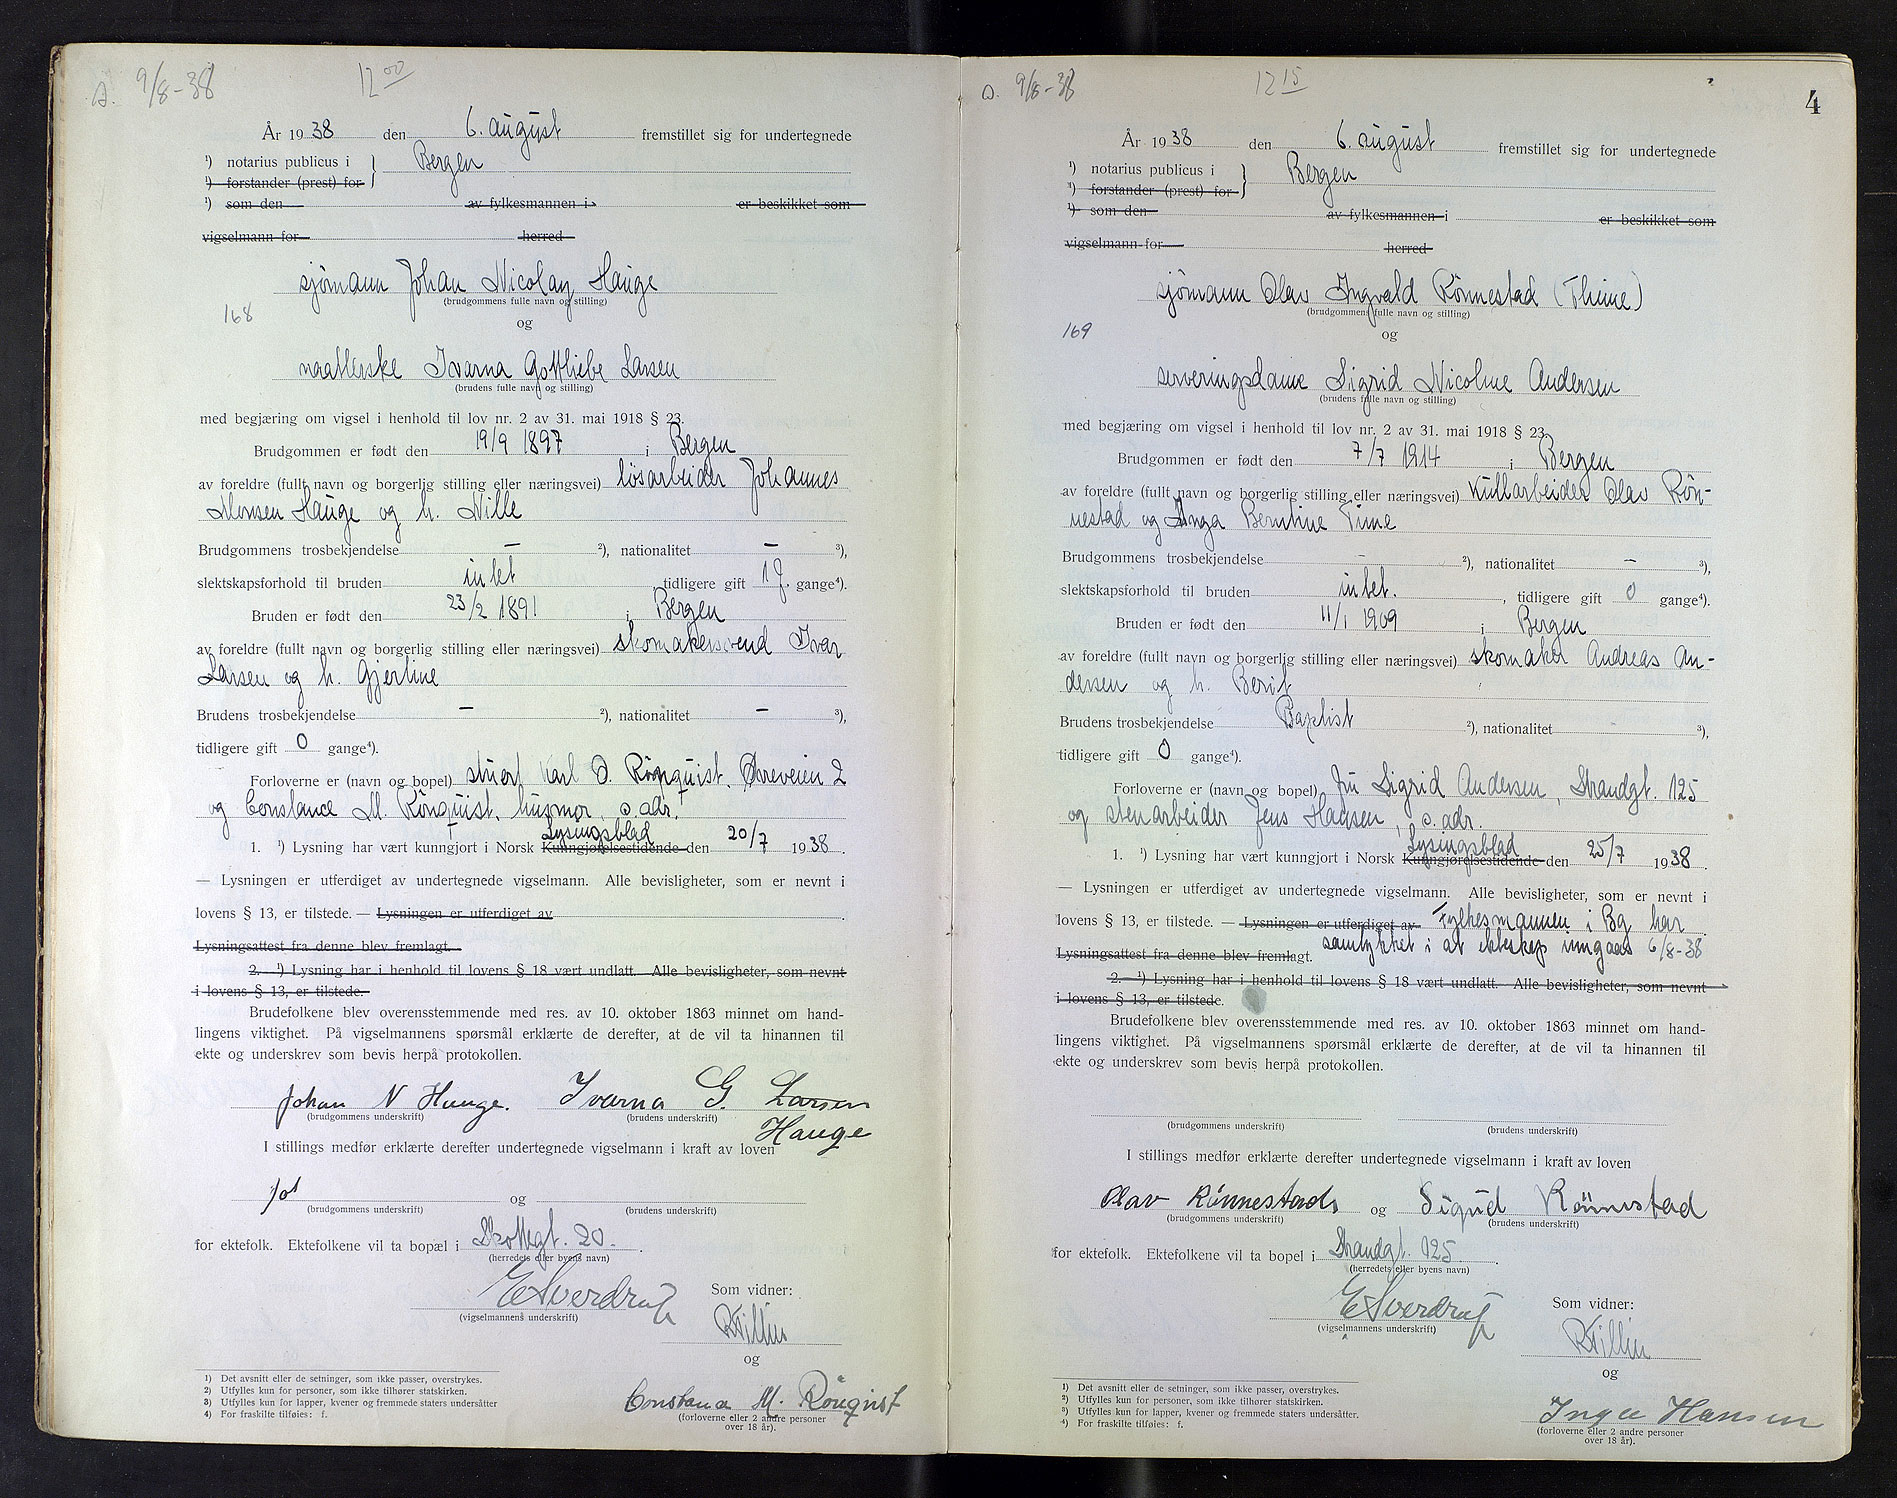 D. 9/8-38 12 00
År 1938 den 6. august fremstillet sig for undertegnede
¹) notarius publicus i } Bergen
¹) forstander (prest) for
¹) som den av fylkesmannen i er beskikket som
vigselmann for herred
sjömann Johan Nicolay Hauge
(brudgommens fulle navn og stilling)
168
og
naatlerske Ivarna Gottliebe Larsen
(brudens fulle navn og stilling)
med begjæring om vigsel i henhold til lov nr. 2 av 31. mai 1918 § 23.
Brudgommen er født den 19/9 1897 i Bergen
av foreldre (fullt navn og borgerlig stilling eller næringsvei) lösarbeider Johannes
Monsen Hauge og h. Nille
Brudgommens trosbekjendelse — ²), nationalitet — ³),
slektskapsforhold til bruden intet, tidligere gift 1 g. gange⁴).
Bruden er født den 23/2 1891 i Bergen
av foreldre (fullt navn og borgerlig stilling eller næringsvei) skomakersvend Ivar
Larsen og h. Gjertine
Brudens trosbekjendelse — ²), nationalitet — ³),
tidligere gift 0 gange⁴).
Forloverne er (navn og bopel) stuert Karl O. Rönquist, Øvreveien 2
og Constance M. Rönquist, husmor, s. adr.
Lysingsblad
1. ¹) Lysning har vært kunngjort i Norsk Kunngjørelsestidende den 20/7 1938.
— Lysningen er utferdiget av undertegnede vigselmann. Alle bevisligheter, som er nevnt i
lovens § 13, er tilstede. — Lysningen er utferdiget av
Lysningsattest fra denne blev fremlagt.
2. ¹) Lysning har i henhold til lovens § 18 vært undlatt. Alle bevisligheter, som nevnt
i lovens § 13, er tilstede.
Brudefolkene blev overensstemmende med res. av 10. oktober 1863 minnet om hand-
lingens viktighet. På vigselmannens spørsmål erklærte de derefter, at de vil ta hinannen til
ekte og underskrev som bevis herpå protokollen.
Johan N Hauge. Ivarna G. Larsen
(brudgommens underskrift) (brudens underskrift)
Hauge
I stillings medfør erklærte derefter undertegnede vigselmann i kraft av loven
Joh
og
(brudgommens underskrift) (brudens underskrift)
for ektefolk. Ektefolkene vil ta bopæl i Skottegt. 20.
(herredets eller byens navn)
E Sverdrup
(vigselmannens underskrift)
Som vidner:
og
Constance M. Rönqvist
(forloverne eller 2 andre personer
over 18 år).
1) Det avsnitt eller de setninger, som ikke passer, overstrykes.
2) Utfylles kun for personer, som ikke tilhører statskirken.
3) Utfylles kun for lapper, kvener og fremmede staters undersåtter
4) For fraskilte tilføies: f.
D. 9/8-38 12 15
4
År 1938 den 6. august fremstillet sig for undertegnede
¹) notarius publicus i } Bergen
¹) forstander (prest) for
¹) som den av fylkesmannen i er beskikket som
vigselmann for herred
sjömann Olav Ingvald Rönnestad (Thime)
(brudgommens fulle navn og stilling)
169
og
serveringsdame Sigrid Nicoline Andersen
(brudens fulle navn og stilling)
med begjæring om vigsel i henhold til lov nr. 2 av 31. mai 1918 § 23.
Brudgommen er født den 7/7 1914 i Bergen
av foreldre (fullt navn og borgerlig stilling eller næringsvei) Kullarbeider Olav Rön-
nestad og Inga Berntine Time
Brudgommens trosbekjendelse — ²), nationalitet — ³),
slektskapsforhold til bruden intet., tidligere gift 0 gange⁴).
Bruden er født den 11/1 1909 i Bergen
av foreldre (fullt navn og borgerlig stilling eller næringsvei) skomaker Andreas An-
dersen og h. Berit
Brudens trosbekjendelse Baptist ²), nationalitet ³),
tidligere gift 0 gange⁴).
Forloverne er (navn og bopel) fru Sigrid Andersen, Strandgt. 125
og stenarbeider Jens Hansen, s. adr.
Lysingsblad
1. ¹) Lysning har vært kunngjort i Norsk Kunngjørelsestidende den 25/7 1938.
— Lysningen er utferdiget av undertegnede vigselmann. Alle bevisligheter, som er nevnt i
lovens § 13, er tilstede. — Lysningen er utferdiget av Fylkesmannen i Bg har
Lysningsattest fra denne blev fremlagt. samtykket i at ekteskap inngaaes 6/8-38
2. ¹) Lysning har i henhold til lovens § 18 vært undlatt. Alle bevisligheter, som nevnt
i lovens § 13, er tilstede.
Brudefolkene blev overensstemmende med res. av 10. oktober 1863 minnet om hand-
lingens viktighet. På vigselmannens spørsmål erklærte de derefter, at de vil ta hinannen til
ekte og underskrev som bevis herpå protokollen.
(brudgommens underskrift) (brudens underskrift)
I stillings medfør erklærte derefter undertegnede vigselmann i kraft av loven
Olav Rönnestad og Sigrid Rönnestad
(brudgommens underskrift) (brudens underskrift)
for ektefolk. Ektefolkene vil ta bopel i Strandgt. 125.
(herredets eller byens navn)
E Sverdrup
(vigselmannens underskrift)
Som vidner:
og
Inga Hansen
(forloverne eller 2 andre personer
over 18 år).
¹) Det avsnitt eller de setninger, som ikke passer, overstrykes.
²) Utfylles kun for personer, som ikke tilhører statskirken.
³) Utfylles kun for lapper, kvener og fremmede staters undersåtter.
⁴) For fraskilte tilføies: f.